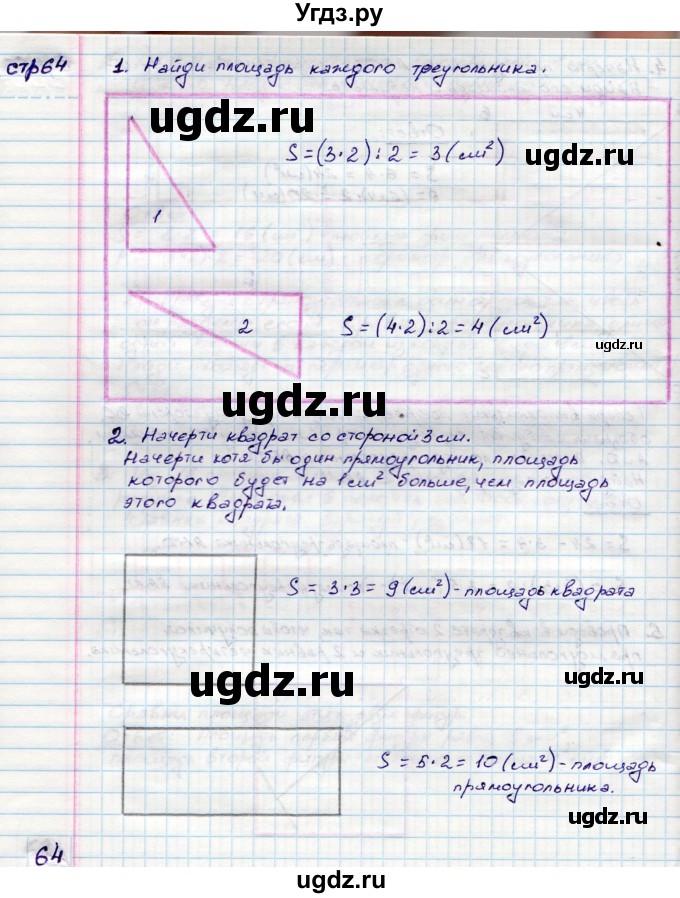 Угдз.ру
стр64
1. Найди площадь каждого треугольника.
ugdz.ru
S=(3·2):2=3(см²)
1
ugdz.ru
2
S=(4·2):2=4(см²)
ugdz.ru
ugdz.ru
2. Начерти квадрат со стороной 3 см.
Начерти хотя бы один прямоугольник, площадь
которого будет на 1 см² больше, чем площадь
этого квадрата.
ugdz.ru
S = 3·3 = 9(см²)-площадь квадрата
ugdz.ru
S = 5·2 = 10(см²)-площадь
прямоугольника.
ugdz.ru
64
ugdz.ru